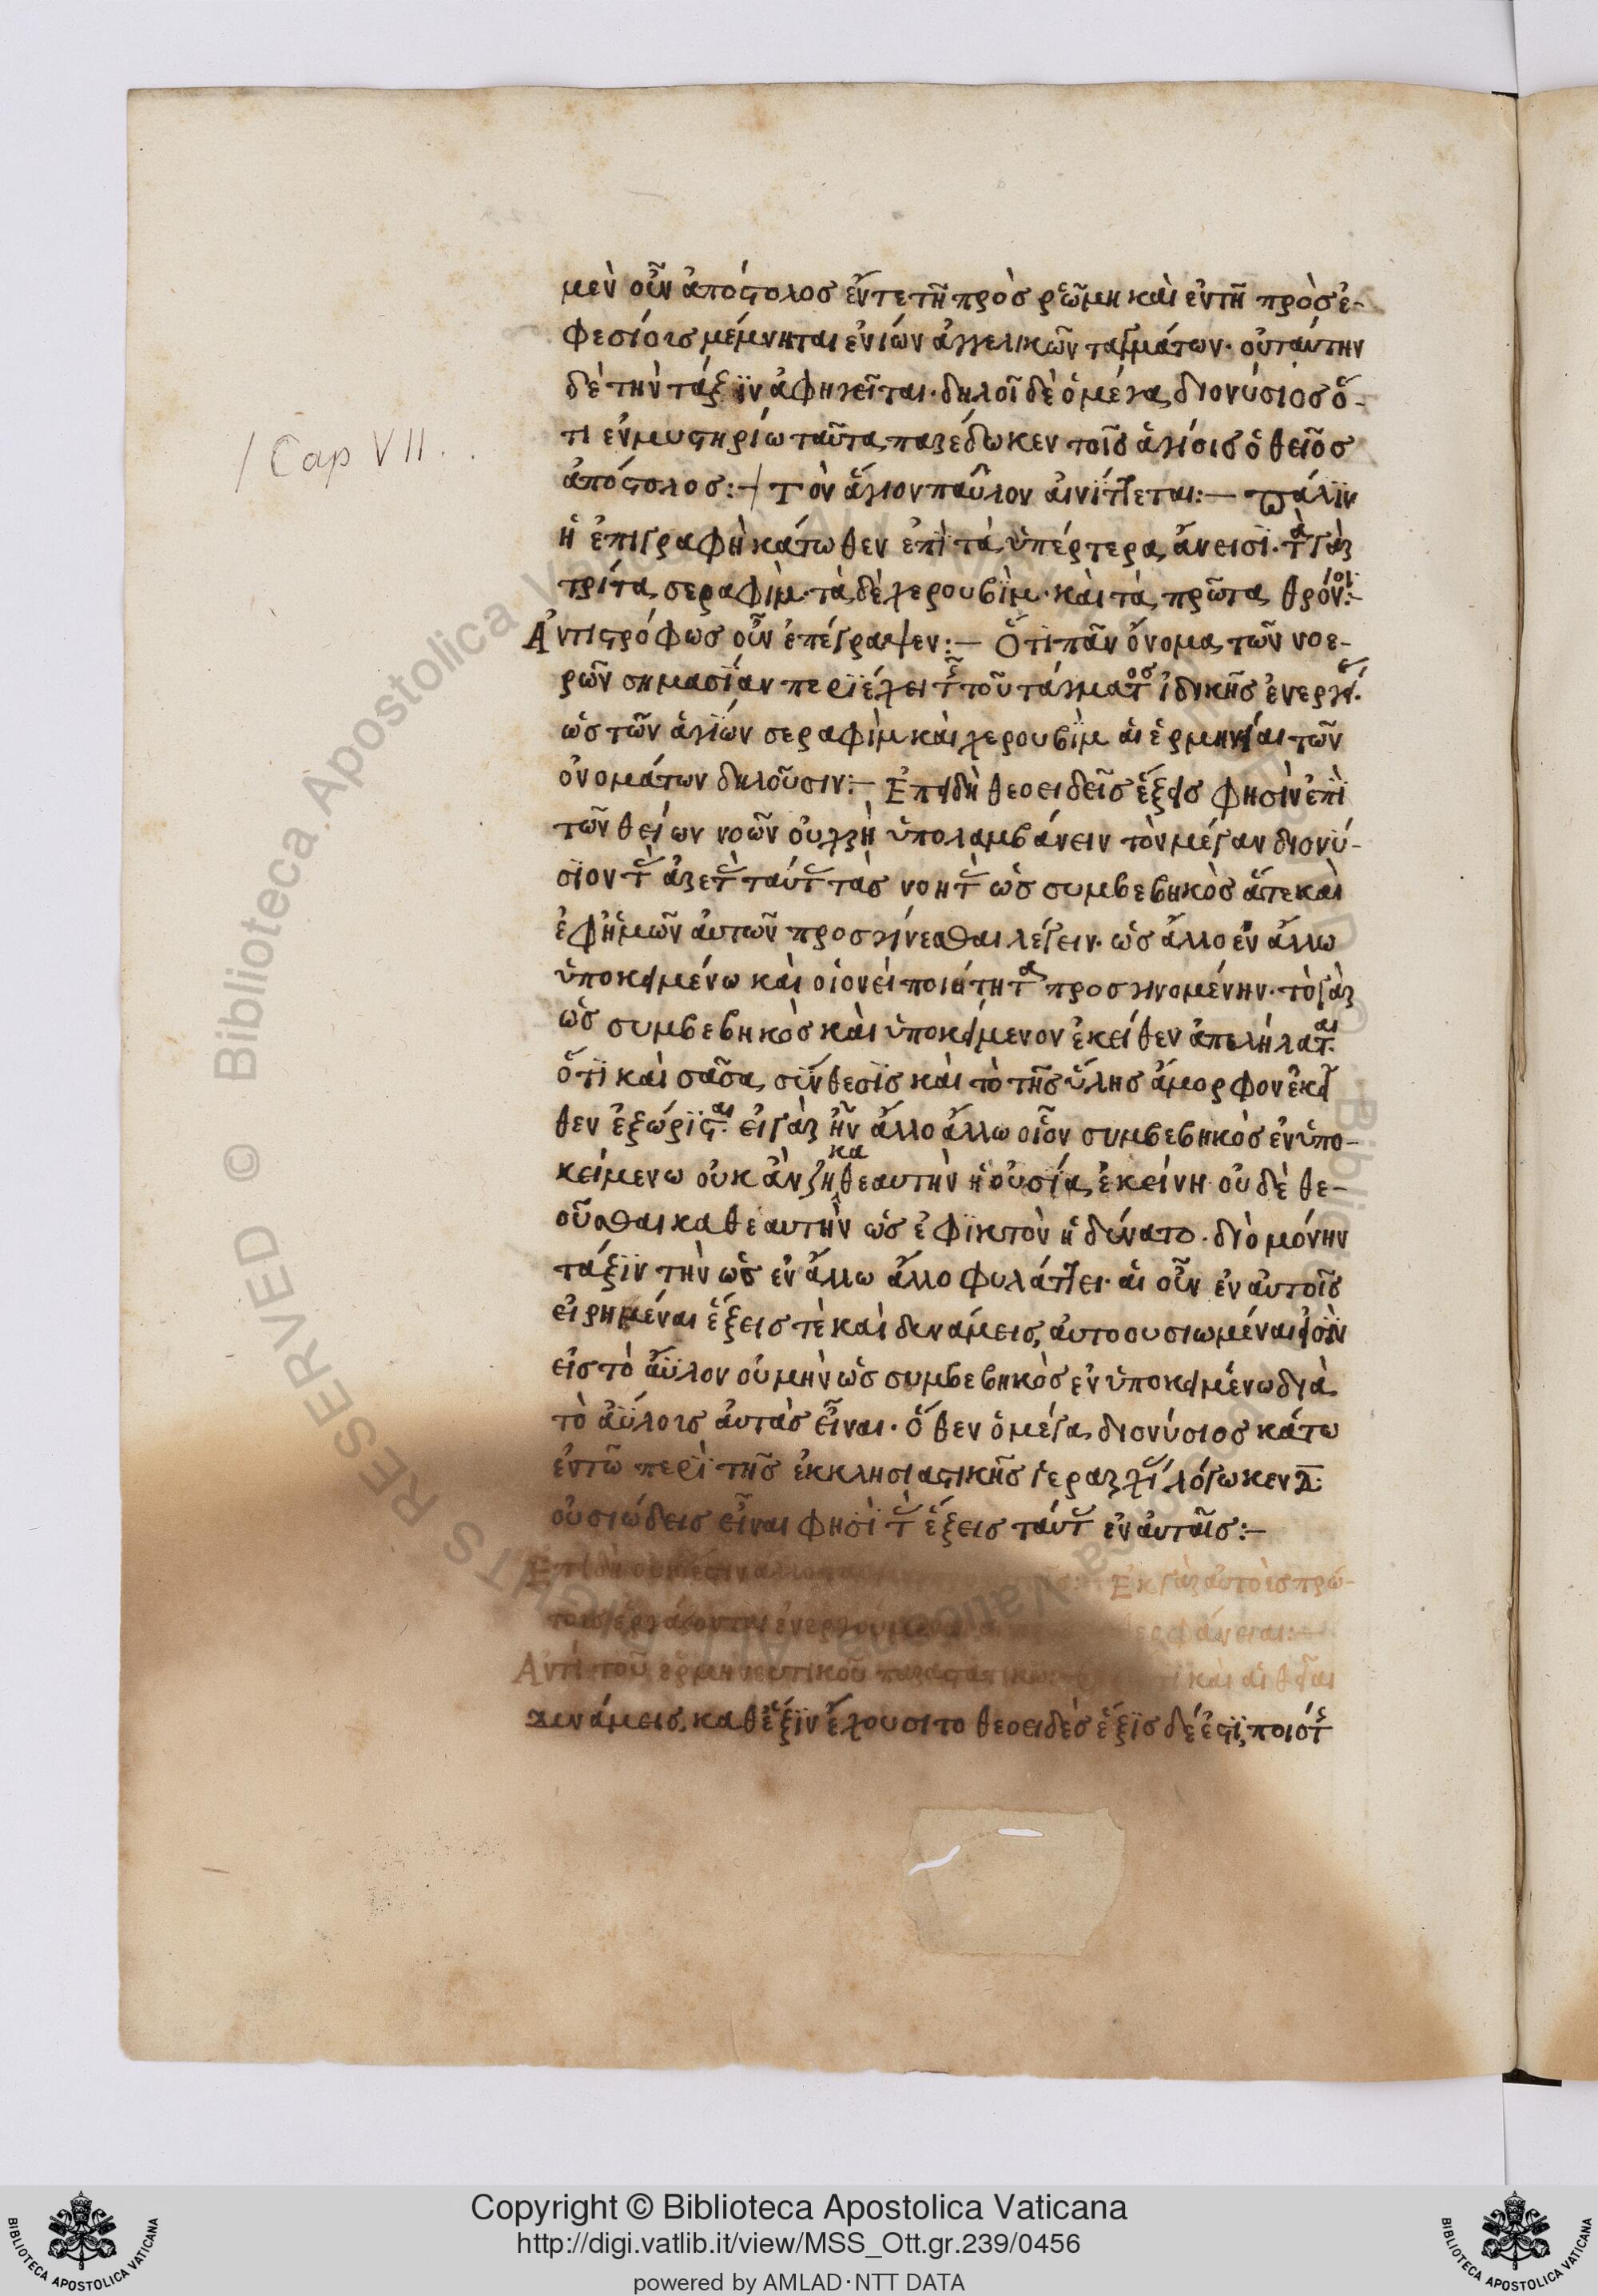 μὲν οὖν ἀπόστολος ἔν τε τῆ πρὸς ῥώμη καὶ ἐν τῆ πρὸς ἐ-
φεσίοις μέμνηται ἐνίων ἀγγελικῶν ταγμάτων· οὐ ταύτην
δὲ τὴν τάξϊν ἀφηγεῖται· δηλοῖ δὲ ὁ μέγας διονύσιος ὅ-
τι ἐν μυστηρίω ταῦτα παρέδωκεν τοῖς ἁγίοις ὁ θεῖος
ἀπόστολος:– / Τὸν ἅγιον παῦλον αἰνίττεται:– πάλϊν
/ Cap VII . .
ἡ ἐπιγραφὴ κάτωθεν ἐπὶ τὰ ὑπέρτερα ἄνεισϊ· τὰ γὰρ
τρίτα σεραφὶμ· τὰ δὲ χερουβὶμ· καὶ τὰ πρῶτα θρόνοι:–
Ἀντιστρόφως οὖν ἐπέγραψεν:– Ὅτι πᾶν ὄνομα τῶν νοε-
ρῶν σημασίαν περϊέχει τῆς τοῦ τάγματος ἰδικῆς ἐνεργείας·
ὡς τῶν ἁγίων σεραφὶμ καὶ χερουβὶμ αἱ ἑρμηνεῖαι τῶν
ὀνομάτων δηλοῦσιν:– Ἐπειδὴ θεοειδεῖς ἕξεις φησὶν ἐπὶ
τῶν θείων νοῶν οὐ χρὴ ὑπολαμβάνειν τὸν μέγαν διονύ-
σϊον τὰς ἀρετὰς ταύτας τὰς νοητὰς ὡς συμβεβηκὸς ἅτε καὶ
ἐφ' ἡμῶν αὐτῶν προσγίνεσθαι λέγειν· ὡς ἄλλο ἐν ἄλλω
ὑποκειμένω καὶ οἱονεὶ ποιότητα προσγινομένην· τὸ γὰρ
ὡς συμβεβηκὸς καὶ ὑποκείμενον ἐκεῖθεν ἀπελήλαται·
ὅτϊ καὶ πᾶσα σύνθεσϊς καὶ τὸ τῆς ὕλης ἄμορφον ἐκεῖ
θεν ἐξώρϊσται· εἰ γὰρ ἦν ἄλλο ἄλλω οἷον συμβεβηκὸς ἐν ὑπο-
κείμενω οὐκ ἂν ζη καθεαυτὴν ἡ οὐσία ἐκείνη· οὐδὲ θε-
οῦσθαι καθεαυτὴν ὡς ἐφϊκτὸν ἠδύνατο· διὸ μόνην
τάξϊν τὴν ὡς ἐν ἄλλω ἄλλο φυλάττει· αἱ οὖν ἐν αὐτοῖς
εἰρημέναι ἕξεις τὲ καὶ δυνάμεις, αὐτοουσιωμέναι εἰσὶν
εἰς τὸ ἄϋλον οὐ μὴν ὡς συμβεβηκὸς ἐν ὑποκειμένω διὰ
τὸ ἀΰλοις αὐτὰς εἶναι· ὅθεν ὁ μέγας διονύσιος κάτω
ἐν τῶ περὶ τῆς ἐκκλησιαστικῆς ἱεραρχίας λόγω κεν δ·
οὐσιώδεις εἶναι φησὶ τὰς ἕξεις ταύτας ἐν αὐταῖς:–
Ἐκ γὰρ αὐτοῖς πρώ-
τοις ἐργάζονται ἐνεργούμενα
Ἀντὶ τοῦ ἑρμηνευτικοῦ καὶ αἱ θεῖαι
δυνάμεις, καθ' ἕξϊν ἔχουσι το θεοειδὲς ἕξϊς δέ ἐστϊ, ποιότης
Copyright © Biblioteca Apostolica Vaticana
http://digi.vatlib.it/view/MSS_Ott.gr.239/0456
powered by AMLAD·NTT DATA
BIBLIOTECA APOSTOLICA VATICANA
BIBLIOTECA APOSTOLICA VATICANA